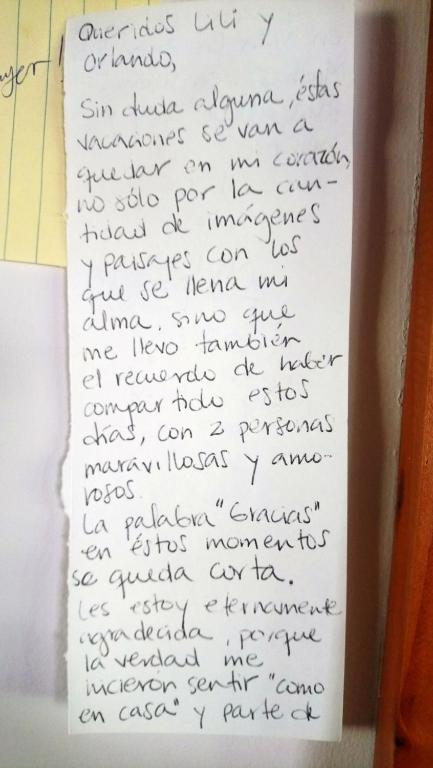 ayer!
Queridos Lili y
Orlando,
Sin duda alguna, éstas
vacaciones se van a
quedar en mi corazón,
no sólo por la can-
tidad de imágenes
y paisajes con los
que se llena mi
alma. sino que
me llevo también
el recuerdo de haber
compartido estos
días, con 2 personas
maravillosas y amo-
rosos.
La palabra "Gracias"
en éstos momentos
se queda corta.
Les estoy eternamente
agradecida, porque
la verdad me
hicieron sentir "como
en casa" y parte de